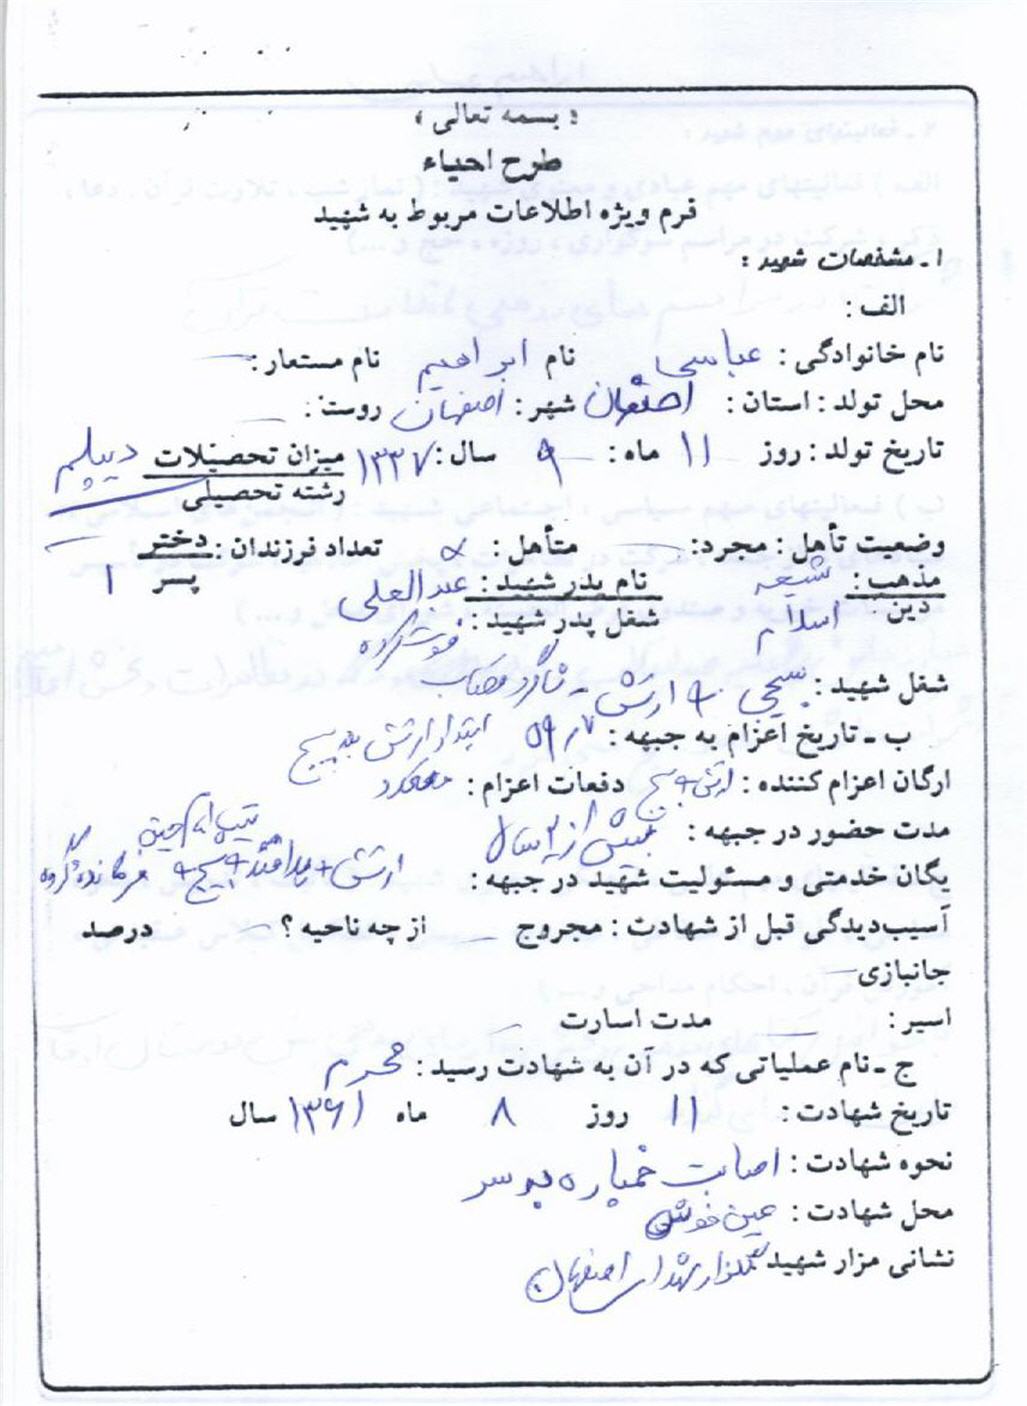 « بسمه تعالی »
طرح احیاء
فرم ویژه اطلاعات مربوط به شهید
۱ ـ مشخصات شهید :
الف :
نام خانوادگی : عباسی نام ابراهیم نام مستعار : —
محل تولد : استان : اصفهان شهر : اصفهان روستا : —
تاریخ تولد : روز ۱۱ ماه : ۹ سال : ۱۳۳۷ میزان تحصیلات دیپلم
رشته تحصیلی —
وضعیت تأهل : مجرد : — متأهل : × تعداد فرزندان : دختر —
مذهب : شیعه نام پدر شهید : عبدالعلی پسر ۱
دین اسلام شغل پدر شهید : فوت کرده
شغل شهید : بسیجی + ارتش - شاگرد قصاب
ب ـ تاریخ اعزام به جبهه : ۵۹/۷ ابتدا از ارتش بعد بسیج
ارگان اعزام کننده : ارتش + بسیج دفعات اعزام :
مدت حضور در جبهه : بیش از ۲ سال
یگان خدمتی و مسئولیت شهید در جبهه : ارتش + پدافند + بسیج + فرمانده گروه
آسیب‌دیدگی قبل از شهادت : مجروح — از چه ناحیه ؟ — درصد
جانبازی —
اسیر : — مدت اسارت —
ج ـ نام عملیاتی که در آن به شهادت رسید : محرم
تاریخ شهادت : ۱۱ روز ۸ ماه ۱۳۶۱ سال
نحوه شهادت : اصابت خمپاره به سر
محل شهادت : عین خوش
نشانی مزار شهید گلزار شهدای اصفهان